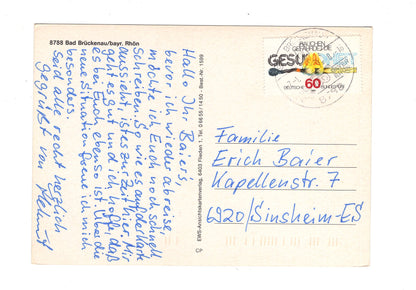 8788 Bad Brückenau/bayr. Rhön
Hallo Ihr Baier's,
bevor ich wieder abreise,
möchte ich Euch noch schnell
schreiben. So wie es auf der Karte
aussieht, ist es zur Zeit hier. Mir
geht es gut und ich hoffe, daß
es bei Euch ebenso ist. Über die
neue Situation freue ich mich
besonders.
Seid alle recht herzlich
gegrüßt von Helmut
EWS-Ansichtskartenverlag, 6403 Flieden 1, Tel. 0 66 55 / 14 50 - Best.-Nr. 1599
RAUCHEN
GEFÄHRDET DIE
GESUNDHEIT
60
DEUTSCHE BUNDESPOST
Familie
Erich Baier
Kapellenstr. 7
6920/Sinsheim-ES